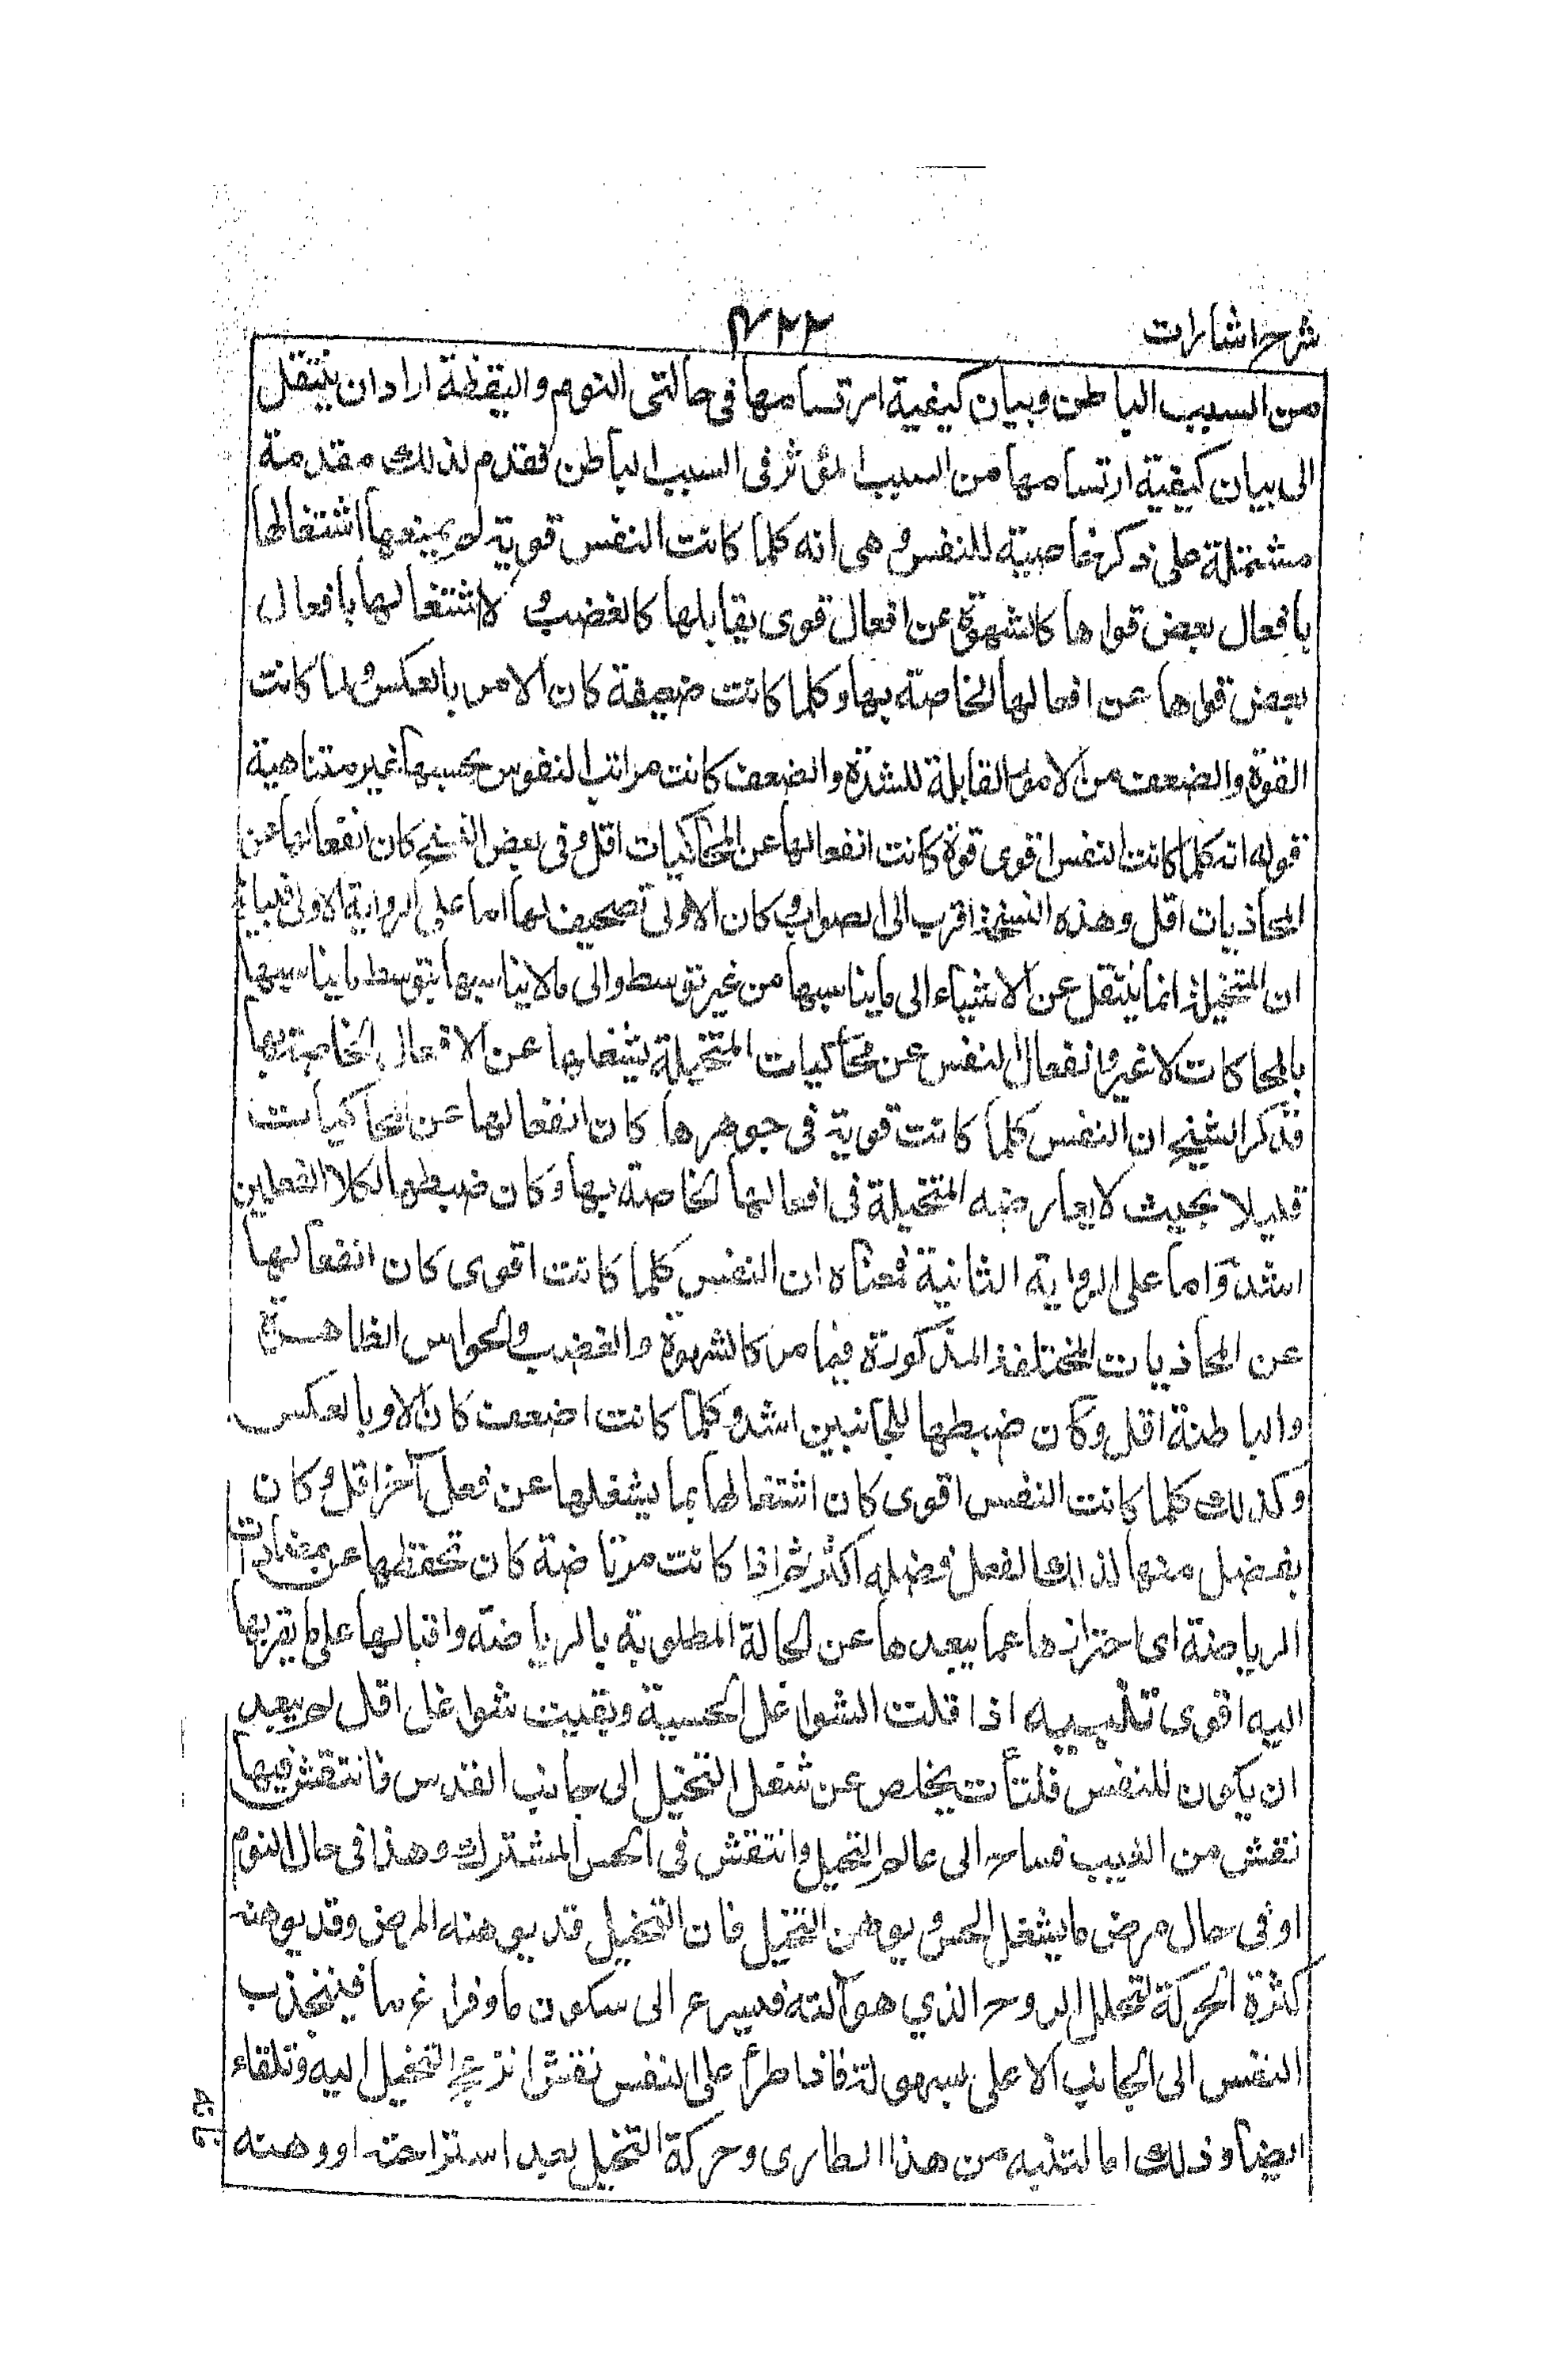 شرح اشارات
۴۲۲
من السبب الباطن وبيان كيفية ارتسامها في حالتي النوم واليقظة اراد ان ينتقل
الى بيان كيفية ارتسامها من السبب المؤثر في السبب الباطن فقدم لذلك مقدمة
مشتملة على ذكر خاصية للنفس وهي انه كلما كانت النفس قوية لم يمنعها اشتغالها
بافعال بعض قواها كالشهوة عن افعال قوى يقابلها كالغضب ولا اشتغالها بافعال
بعض قواها عن افعالها الخاصة بها وكلما كانت ضعيفة كان الامر بالعكس ولما كانت
القوة والضعف من الامور القابلة للشدة والضعف كانت مراتب النفوس بحسبها غير متناهية
قوله انه كلما كانت النفس اقوى قوة كانت انفعالها عن المحاكيات اقل وفي بعض النسخ كان انفعالها عن
المحاذيات اقل وهذه النسخة اقرب الى الصواب وكان الاولى تصحيف لها اما على الرواية الاولى فبيانه
ان المتخيلة انما ينتقل عن الاشياء الى ما يناسبها من غير توسط والى ما لا يناسبها بتوسط ما يناسبها
بالمحاكات لا غير وانفعال النفس عن محاكيات المتخيلة يشغلها عن الافعال الخاصة بها
فذكر الشيخ ان النفس كلما كانت قوية في جوهرها كان انفعالها عن المحاكيات
قليلا بحيث لا يعارضه المتخيلة في افعالها الخاصة بها وكان ضبطها لكلا الفعلين
اشد واما على الرواية الثانية فمعناه ان النفس كلما كانت اقوى كان انفعالها
عن المحاذيات المختلفة المذكورة فيما مر كالشهوة والغضب والحواس الظاهرة
والباطنة اقل وكان ضبطها للجانبين اشد وكلما كانت اضعف كان الامر بالعكس
وكذلك كلما كانت النفس اقوى كان اشتغالها بما يشغلها عن فعل آخر اقل وكان
يفضل منها لذلك الفعل فضله اكثر ثم اذا كانت مرتاضة كان تحفظها عن مضادات
الرياضة اى احترازها عما يبعدها عن الحالة المطلوبة بالرياضة واقبالها على ما يقربها
اليه اقوى تنبيه اذا قلت الشواغل الحسية وبقيت شواغل اقل لم يبعد
ان يكون للنفس فلتات يخلص عن شغل التخيل الى جانب القدس فانتقش فيها
نقش من الغيب فساح الى عالم التخيل وانتقش في الحس المشترك وهذا في حال النوم
او في حال مرض ما يشغل الحس ويوهن التخيل فان التخيل قد يوهنه المرض وقد يوهنه
كثرة الحركة لتحلل الروح الذي هو آلته فيسرع الى سكون ما وفراغ ما فينجذب
النفس الى الجانب الاعلى بسهولة فاذا طرأ على النفس نقش انزعج التخيل اليه وتلقاه
ايضا وذلك اما لتنبه من هذا الطارى وحركة التخيل بعد استراحته او وهنه